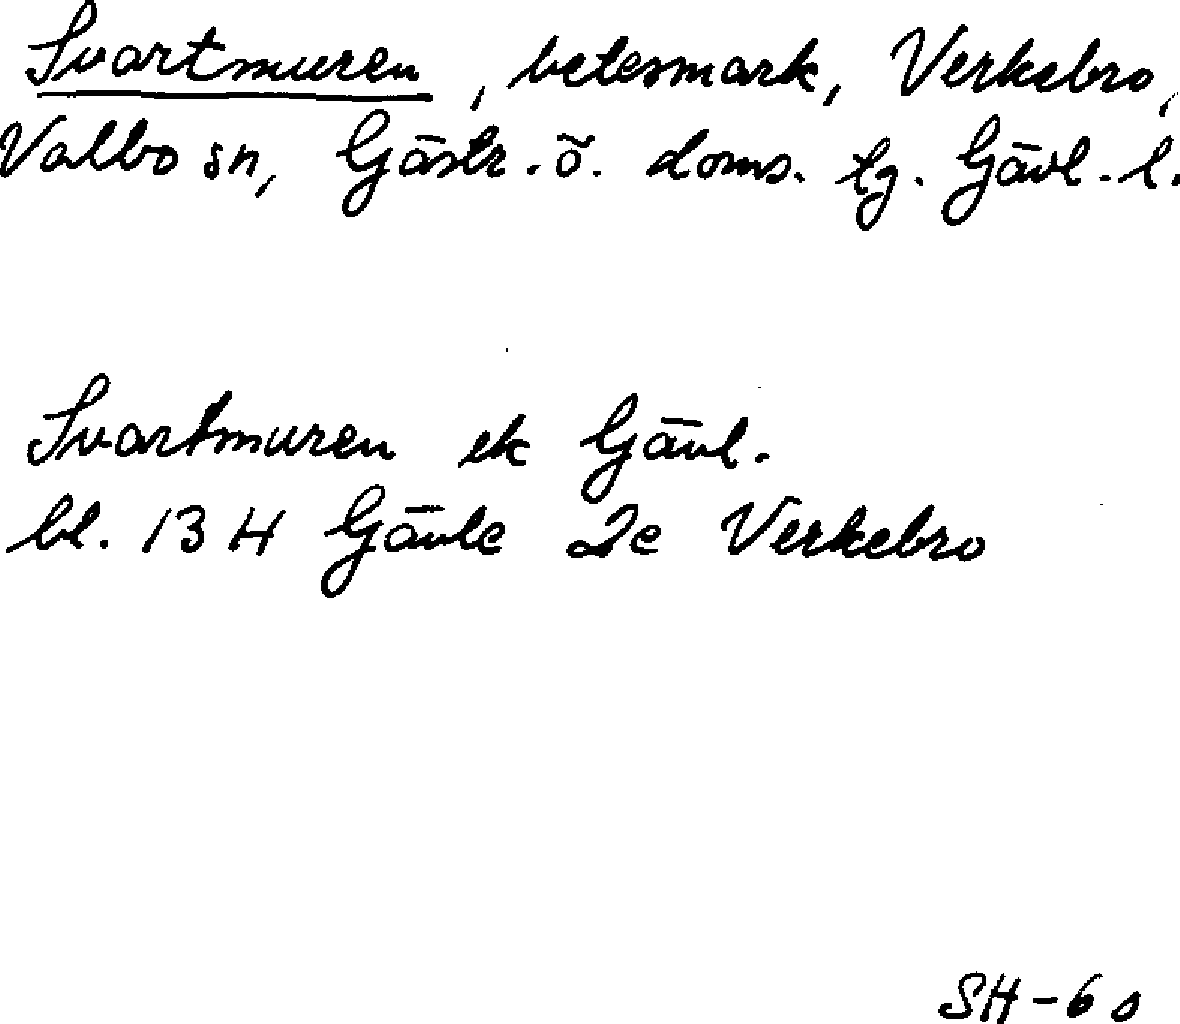 Svartmuren, betesmark, Verkebro,
Valbo sn, Gästr.ö. doms. tg. Gävl.l.
Svartmuren ek Gävl.
bl. 13 H Gävle 2e Verkebro